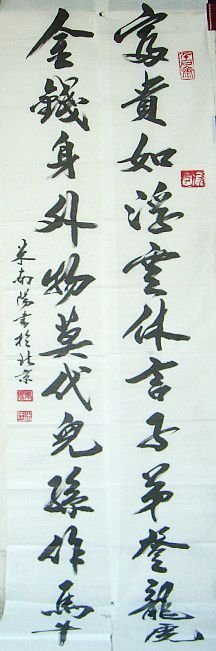 富貴如浮雲休言子弟登龍虎
金錢身外物莫代兒孫作馬牛
米南陽書於北京